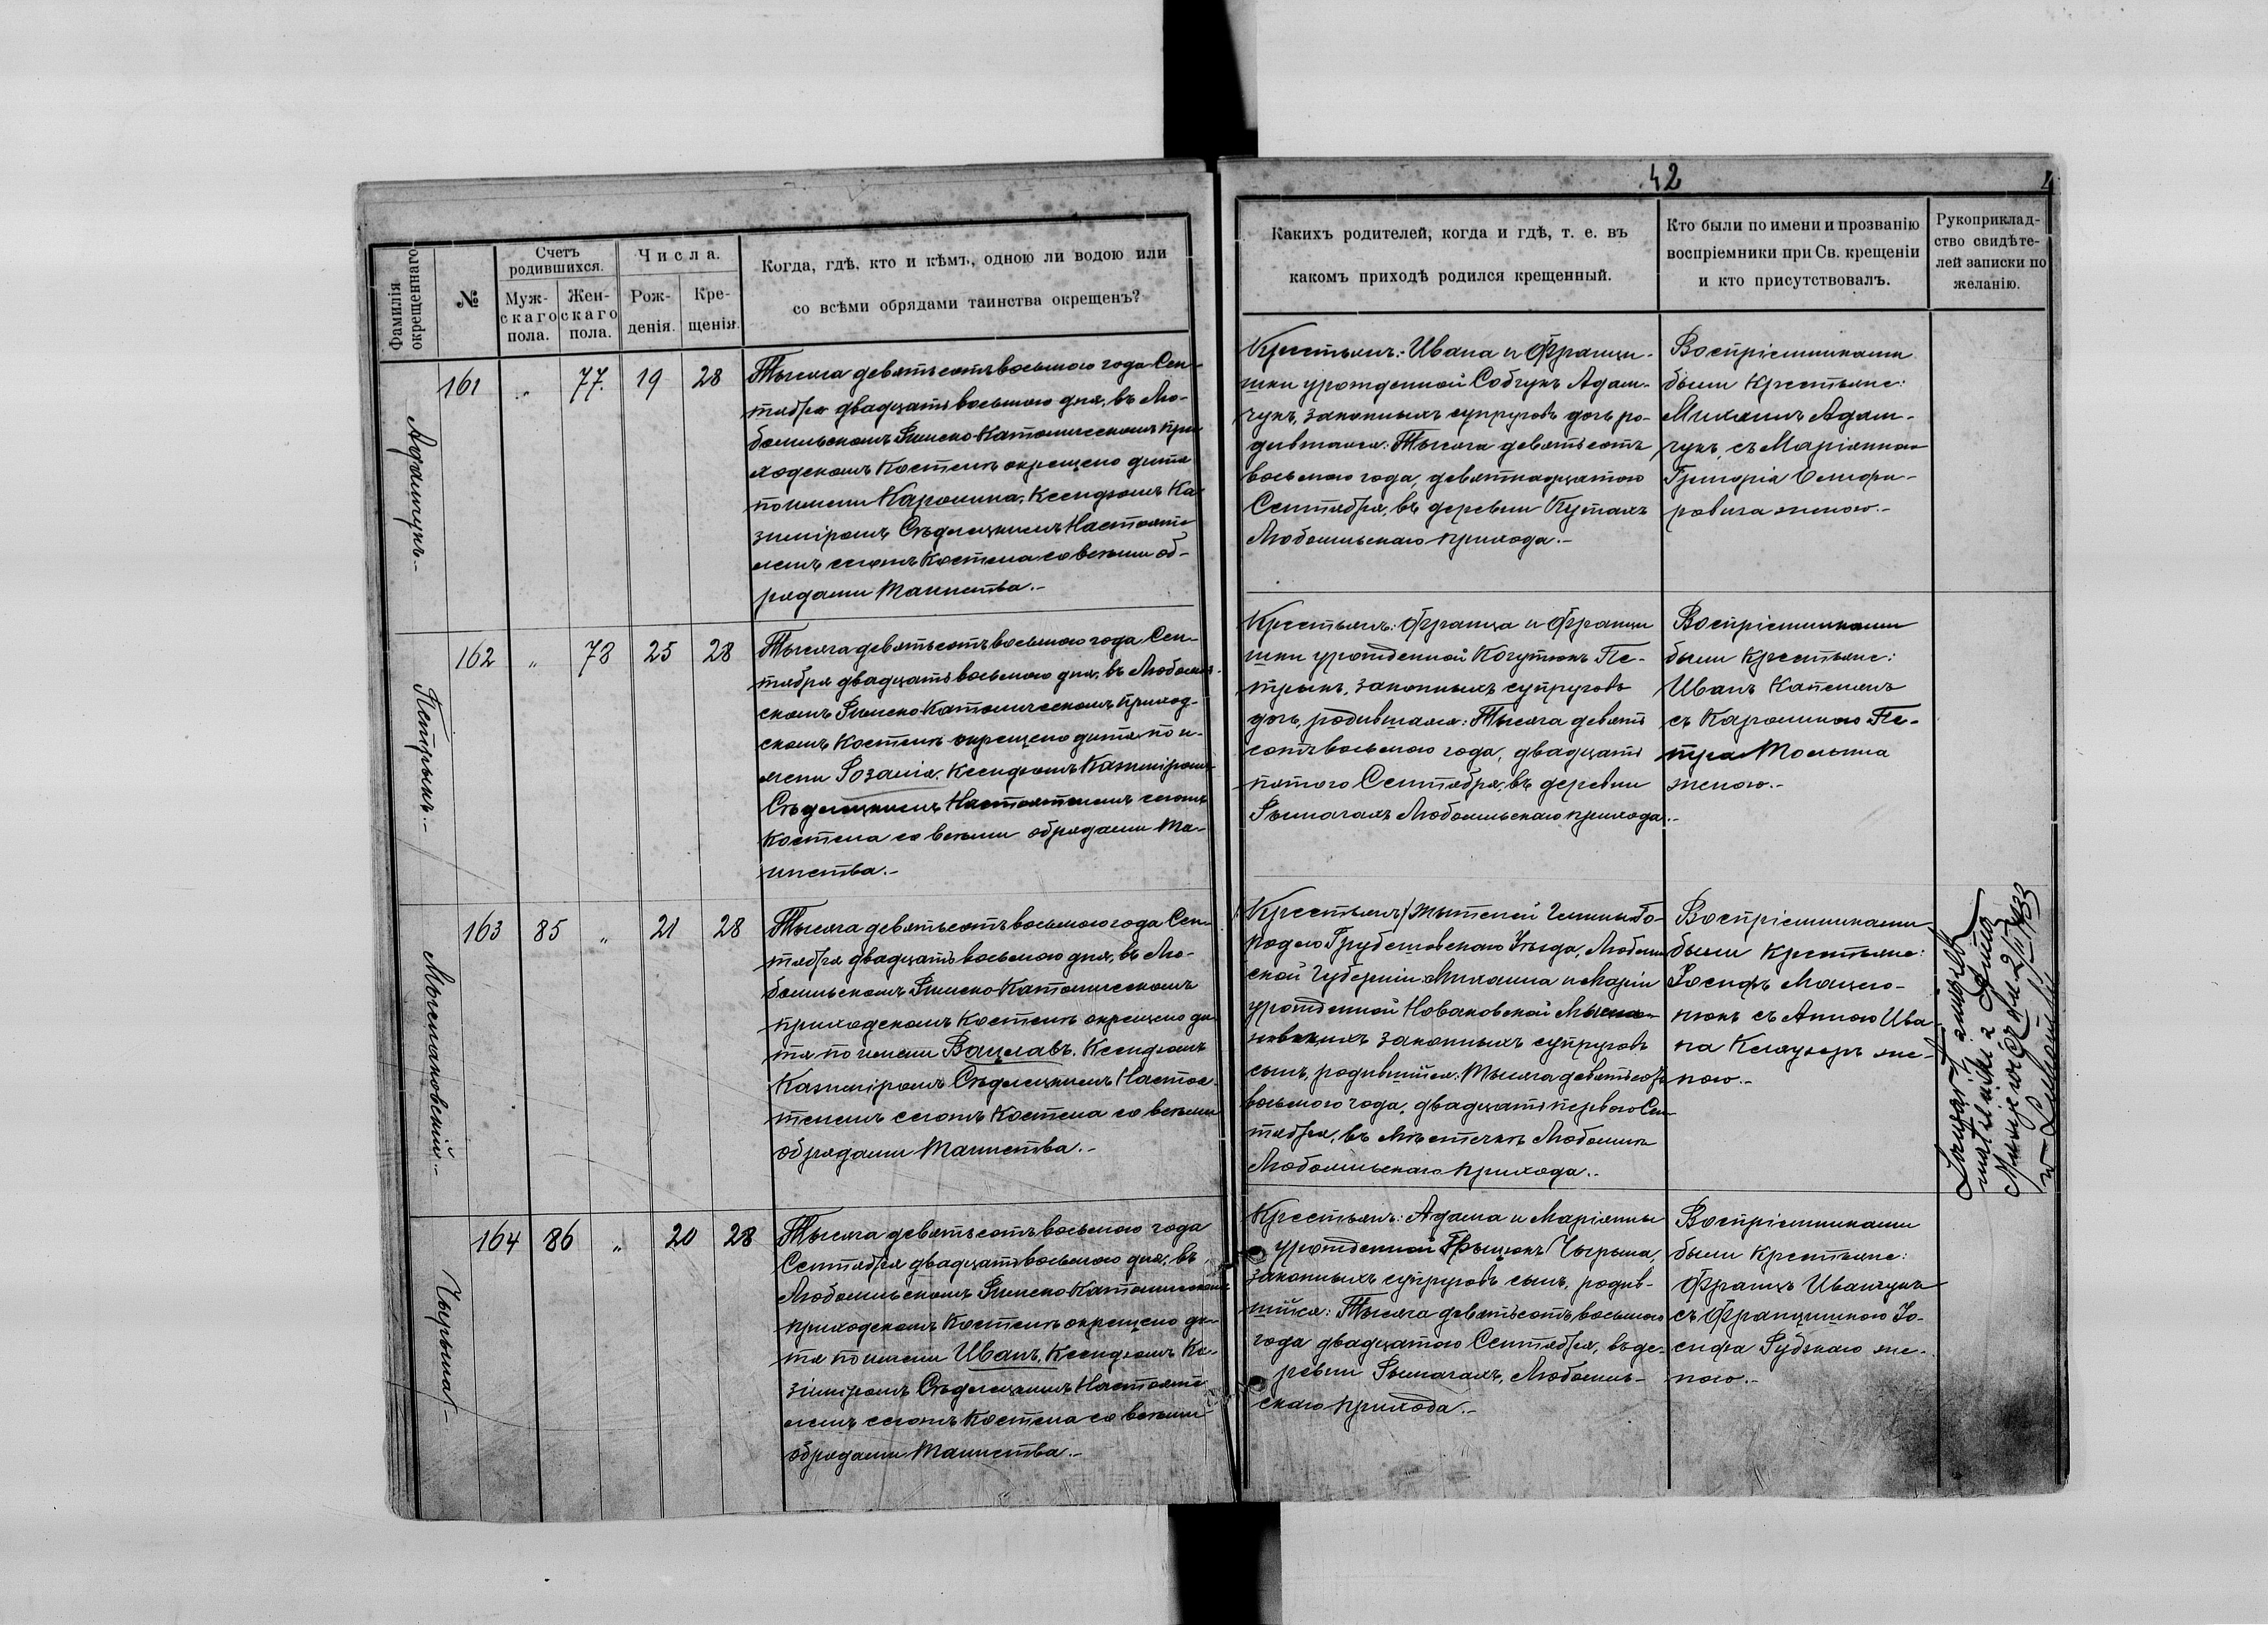 42
Фамилія
окрещеннаго
№
Счетъ
родившихся.
Муж-
скаго
пола.
Жен-
скаго
пола.
Числа.
Рож-
денія.
Кре-
щенія.
Когда, гдѣ, кто и кѣмъ, одною ли водою или
со всѣми обрядами таинства окрещенъ?
Какихъ родителей, когда и гдѣ, т. е. въ
какомъ приходѣ родился крещенный.
Кто были по имени и прозванію
воспріемники при Св. крещеніи
и кто присутствовалъ.
Рукоприклад-
ство свидѣте-
лей записки по
желанію.
Адамчукъ.-
161 " 77. 19 28
Тысяча девятьсотъ восьмого года Сен-
тября двадцать восьмого дня, въ Лю-
бомльскомъ Римско-Католическомъ При-
ходскомъ Костелѣ окрещено дитя
по имени Каролина, Ксендзомъ Ка-
зиміромъ Сѣдлецкимъ Настояте-
лемъ сегожъ Костела со всѣми об-
рядами Таинства.-
Крестьянъ: Ивана и Францы-
шки урожденной Собчукъ Адам-
чукъ, законныхъ супруговъ дочь ро-
дившаяся: Тысяча девятьсотъ
восьмого года, девятнадцатого
Сентября, въ деревни Кутахъ
Любомльскаго прихода.-
Воспріемниками
были Крестьяне:
Михаилъ Адам-
чукъ, съ Маріанною
Григорія
женою.-
Петрыкъ.-
162 " 78 25 28
Тысяча девятьсотъ восьмого года Сен-
тября двадцать восьмого дня, въ Любомль-
скомъ Римско-Католическомъ Приход-
скомъ Костелѣ окрещено дитя по и-
мени Розалія, Ксендзомъ Казиміромъ
Сѣдлецкимъ Настоятелемъ сегожъ
Костела со всѣми обрядами Та-
инства.-
Крестьянъ: Франца и Францы-
шки урожденной Когутюкъ Пе-
трыкъ, законныхъ супруговъ
дочь, родившаяся: Тысяча девять
сотъ восьмого года, двадцать
пятого Сентября, въ деревни
Рымачахъ Любомльскаго прихода.-
Воспріемниками
были Крестьяне:
Иванъ
съ Каролиною Пе-
тра
женою.-
163 85 " 21 28
Тысяча девятьсотъ восьмого года Сен-
тября двадцать восьмого дня, въ Лю-
бомльскомъ Римско-Католическомъ
приходскомъ Костелѣ окрещено ди-
тя по имени Вацлавъ, Ксендзомъ
Казиміромъ Сѣдлецкимъ Настоя-
телемъ сегожъ Костела со всѣми
обрядами Таинства.-
Крестьянъ / жителей Гмины Го-
родло Грубешовскаго Уѣзда, Люблин-
ской Губерніи Михаила и Маріи
урожденной Новаковской
законныхъ супруговъ
сынъ, родившійся: Тысяча девятьсотъ
восьмого года, двадцать перваго Сен-
тября, въ Мѣстечкѣ Любомлѣ
Любомльскаго прихода.-
Воспріемниками
были Крестьяне:
Іосифъ
съ Анною Ива-
на же-
ною.-
Zawarł związek
małżeński z Anną
w Lubomlu
Чырыша.-
164 86 " 20 28
Тысяча девятьсотъ восьмого года
Сентября двадцать восьмого дня, въ
Любомльскомъ Римско-Католическомъ
приходскомъ Костелѣ окрещено ди-
тя по имени Иванъ, Ксендзомъ Ка-
зиміромъ Сѣдлецкимъ Настояте-
лемъ сегожъ Костела со всѣми
обрядами Таинства.-
Крестьянъ: Адама и Маріянны
урожденной Чырыша,
законныхъ супруговъ сынъ, родив-
шійся: Тысяча девятьсотъ восьмого
года двадцатого Сентября, въ де-
ревни Рымачахъ, Любомль-
скаго прихода.-
Воспріемниками
были Крестьяне:
Францъ Иванчукъ
съ Францишкою Іо-
сифа Рудзкаго же-
ною.-